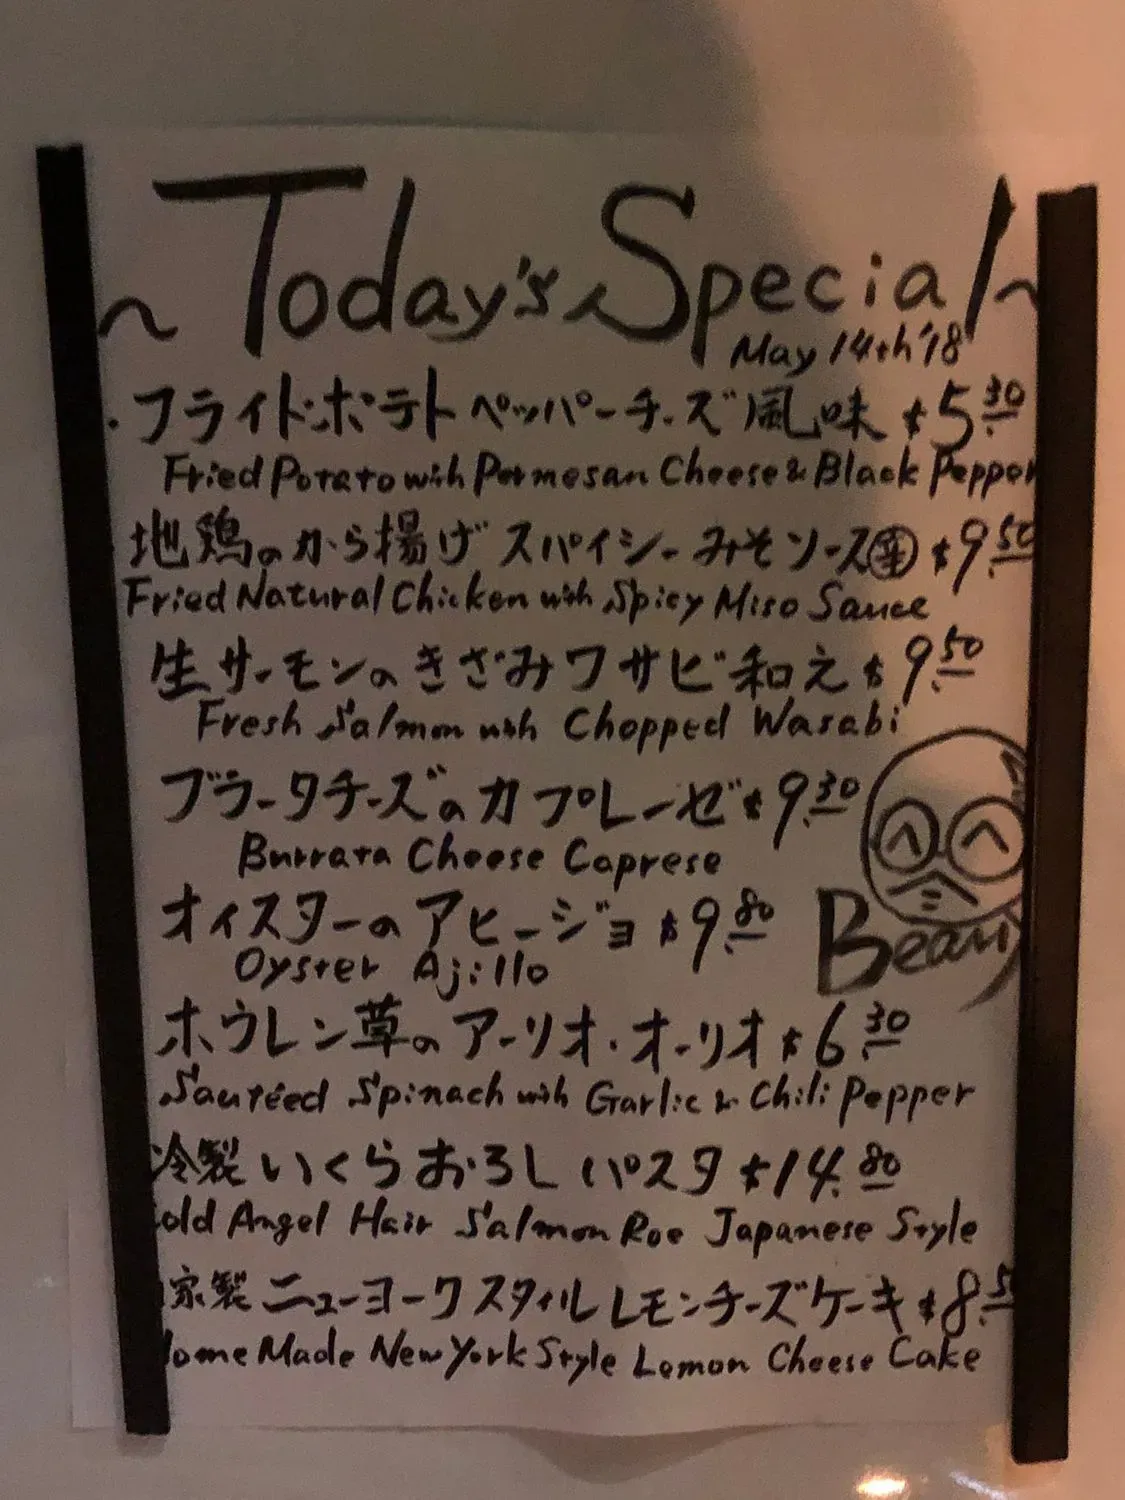 ~ Today's Special ~
May 14th '18
・フライドポテト ペッパーチーズ風味 $5.30
Fried Potato with Parmesan Cheese & Black Pepper
地鶏のから揚げ スパイシーみそソース $9.50
Fried Natural Chicken with Spicy Miso Sauce
生サーモンのきざみワサビ和え $9.50
Fresh Salmon with Chopped Wasabi
ブラータチーズのカプレーゼ $9.30
Burrata Cheese Caprese
オイスターのアヒージョ $9.80
Oyster Ajillo
Beany
ホウレン草のアーリオ・オーリオ $6.30
Sautéed Spinach with Garlic & Chili Pepper
冷製いくらおろしパスタ $14.80
old Angel Hair Salmon Roe Japanese Style
家製ニューヨークスタイルレモンチーズケーキ $8.5
ome Made New York Style Lemon Cheese Cake